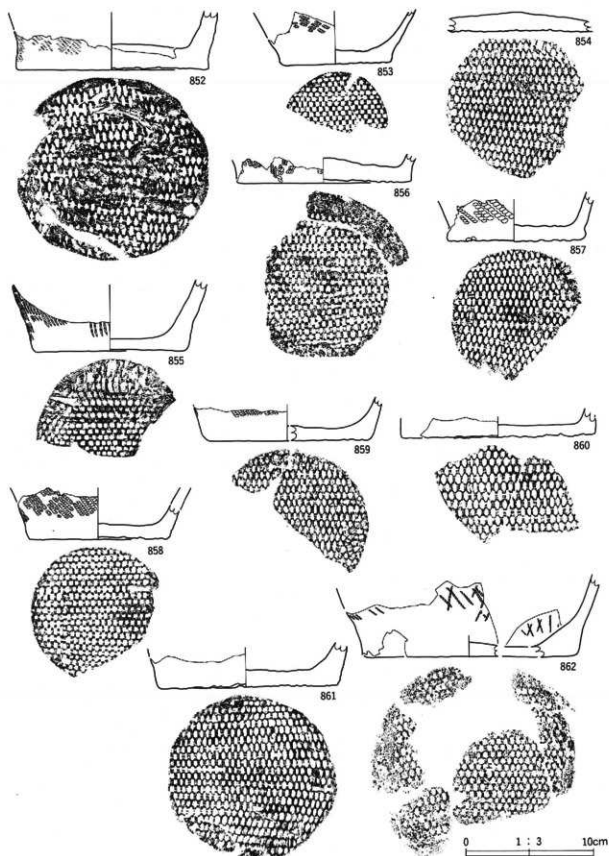 852
853
854
856
857
855
859
860
858
861
862
0 1 : 3 10cm